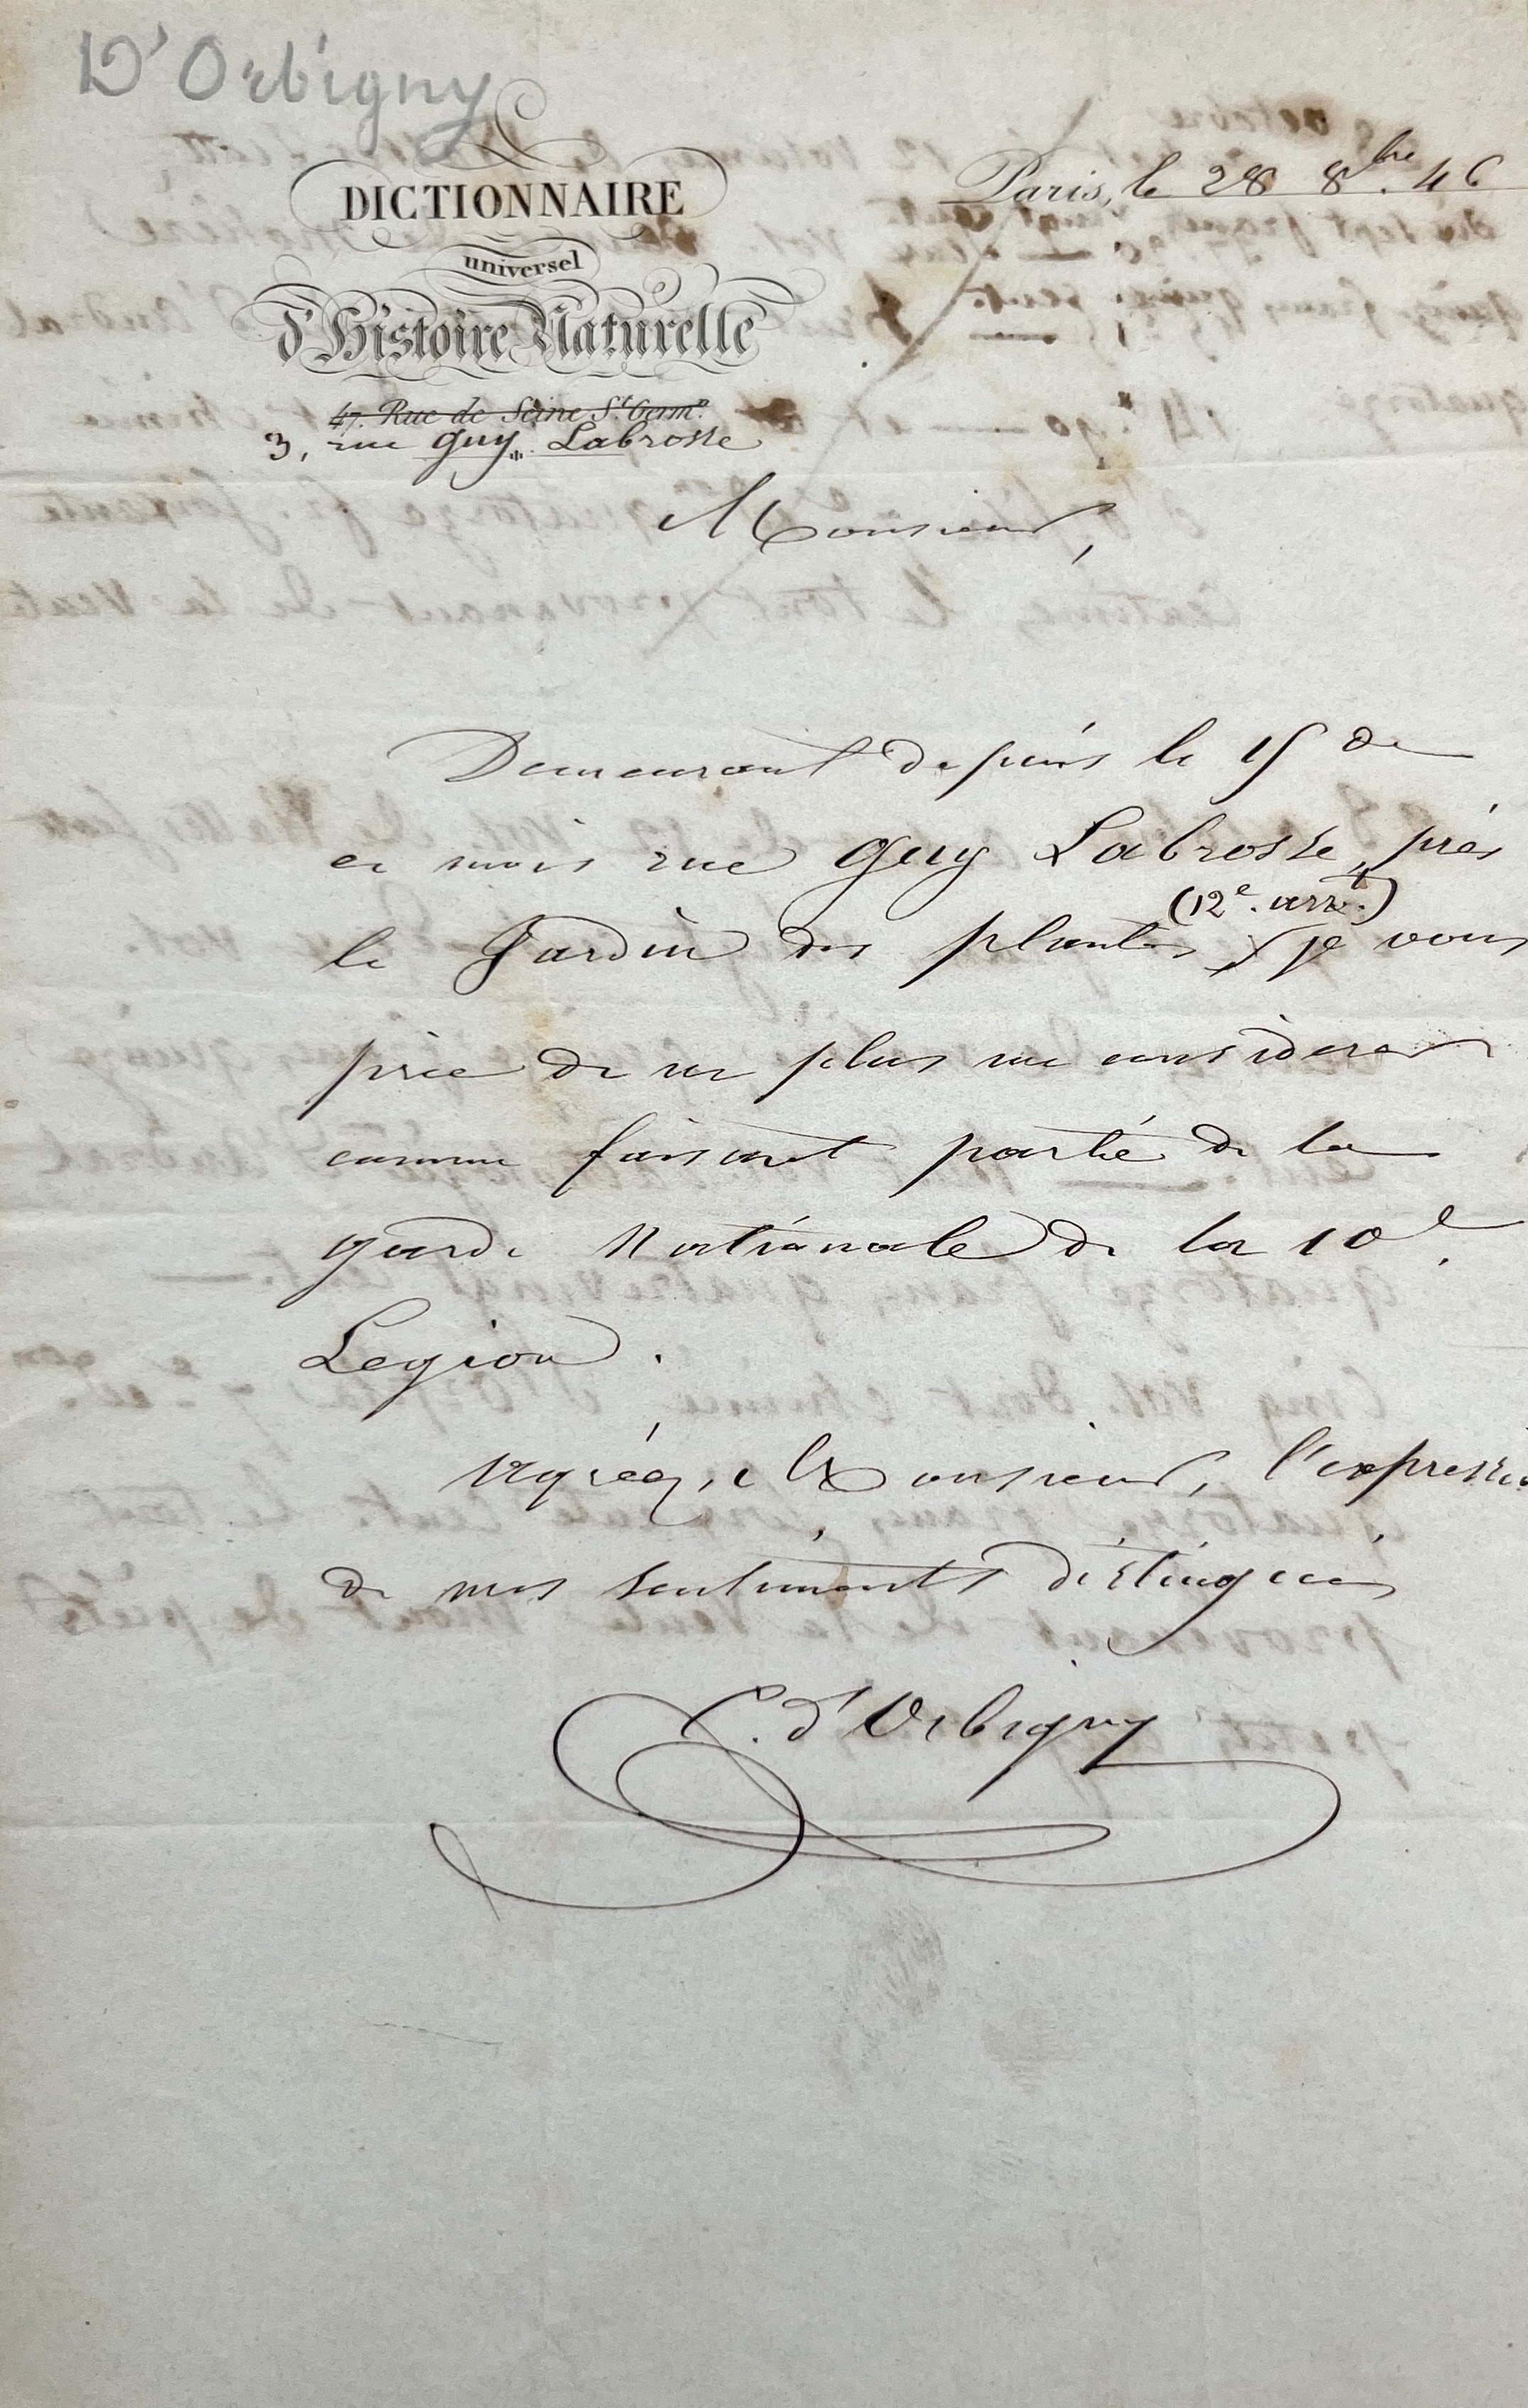 D'Orbigny
DICTIONNAIRE
universel
d'Histoire Naturelle
47. Rue de Seine St. Germn.
3, rue Guy Labrosse
Paris, le 28 8bre. 46
Monsieur,
Demeurant depuis le 15 de
ce mois rue Guy Labrosse, près
(12e. arrt.)
le Jardin des plantes, je vous
prie de ne plus me considerer
comme faisant partie de la
garde Nationale de la 10e.
Legion.
Agréez, Monsieur, l'expression
de mes sentiments distingués
C. d'Orbigny